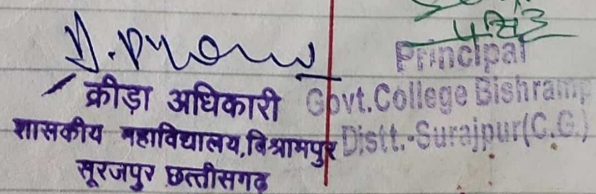 क्रीड़ा अधिकारी
शासकीय महाविद्यालय,विश्रामपुर
सूरजपुर छत्तीसगढ़
Principal
Govt.College Bishramp
Distt.-Surajpur(C.G.)